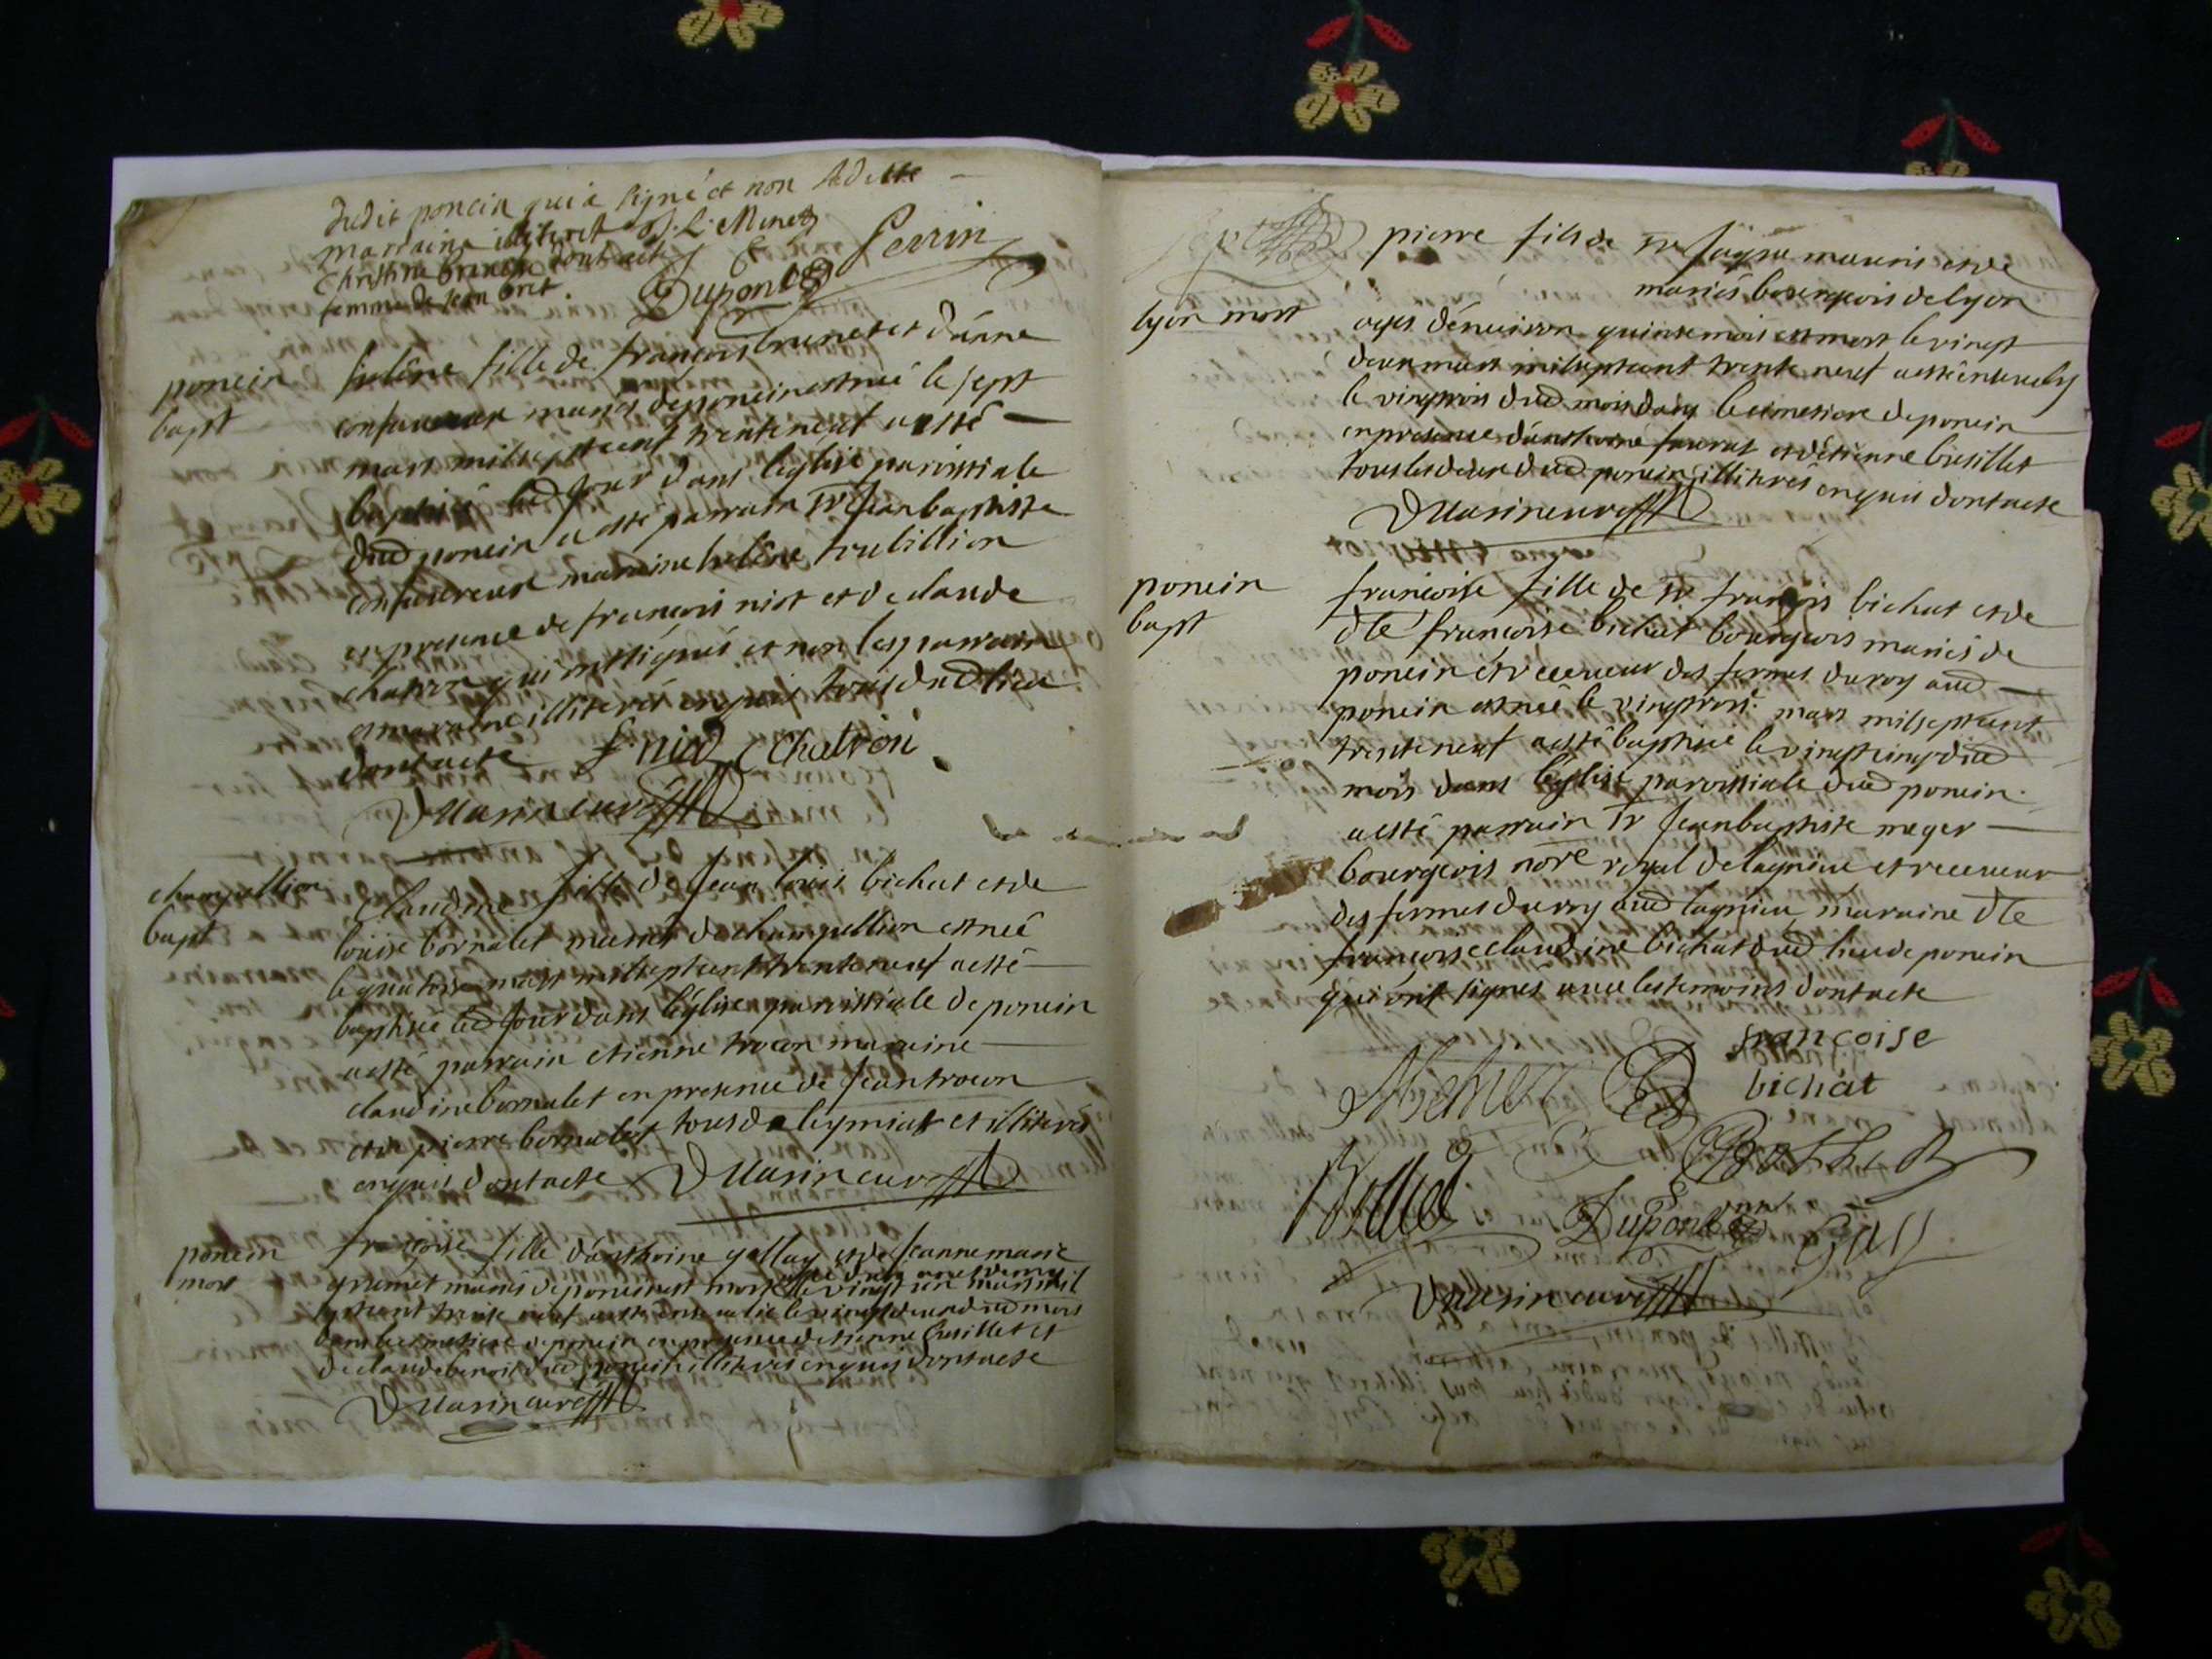 dudit poncin qui a signé et non ladite
marraine illiteret J. L. Menes
Christine brenche dont acte Perrin
femme de jean bret. Dupont
poncin helêne fille de francois brunet et d'anne
bapt confavreux mariés de poncin est née le sept
mars mil sept cent trente neuf a esté
baptisée led jour dans l'eglise parroissiale
dud poncin a esté parrain sr jean baptiste
confavreux maraine helêne trubillion
en presence de francois niot et de claude
chatron qui ont signés et non les parrain
et maraine illiterés enquis tous dud lieu
dont acte f niod C Chatron
Marin curé
champollion Claudine fille de Jean louis bichat et de
bapt louise bornalet mariés de champollion est née
le quatorse mars mil sept cent trente neuf a esté
baptisée led jour dans l'eglise parroissiale de poncin
a esté parrain etienne trocon maraine
claudine bornalet en presence de Jean trocon
et de pierre bornalet tous de leymiat et illiterés
enquis dont acte Marin curé
poncin francoise fille d'anthoine gallay et de Jeanne marie
mort grumet mariés de poncin est morte le vingt un mars mil
sept cent trente neuf a esté ensevelie le vingt deux dud mois
dans le cimetiere de poncin en presence d'etienne busillet et
de claude benoit dud poncin illiterés enquis dont acte
Marin curé
pierre fils de sr mauris et de
mariés bourgeois de lyon
lyon mort agés d'environ quinse mois est mort le vingt
deux mars mil sept cent trente neuf a esté ensevely
le vingt trois dud mois dans le cimetiere de poncin
en presence d'anthoine favrat et d'etienne busillet
tous les deux dud poncin illiterés enquis dont acte
Marin curé
poncin francoise fille de sr francois bichat et de
bapt dlle francoise bichat bourgeois mariés de
poncin et receveur des fermes du roy aud
poncin est née le vingt trois mars mil sept cent
trente neuf a esté baptisée le vingt cinq dud
mois dans l'eglise parroissiale dud poncin
a esté parrain sr Jean baptiste meger
bourgeois nore royal de lagnieu et receveur
des fermes du roy aud lagnieu maraine dlle
francoise claudine bichat dud lieu de poncin
qui ont signés avec les temoins dont acte
francoise
bichat
Dupont Gay
Marin curé